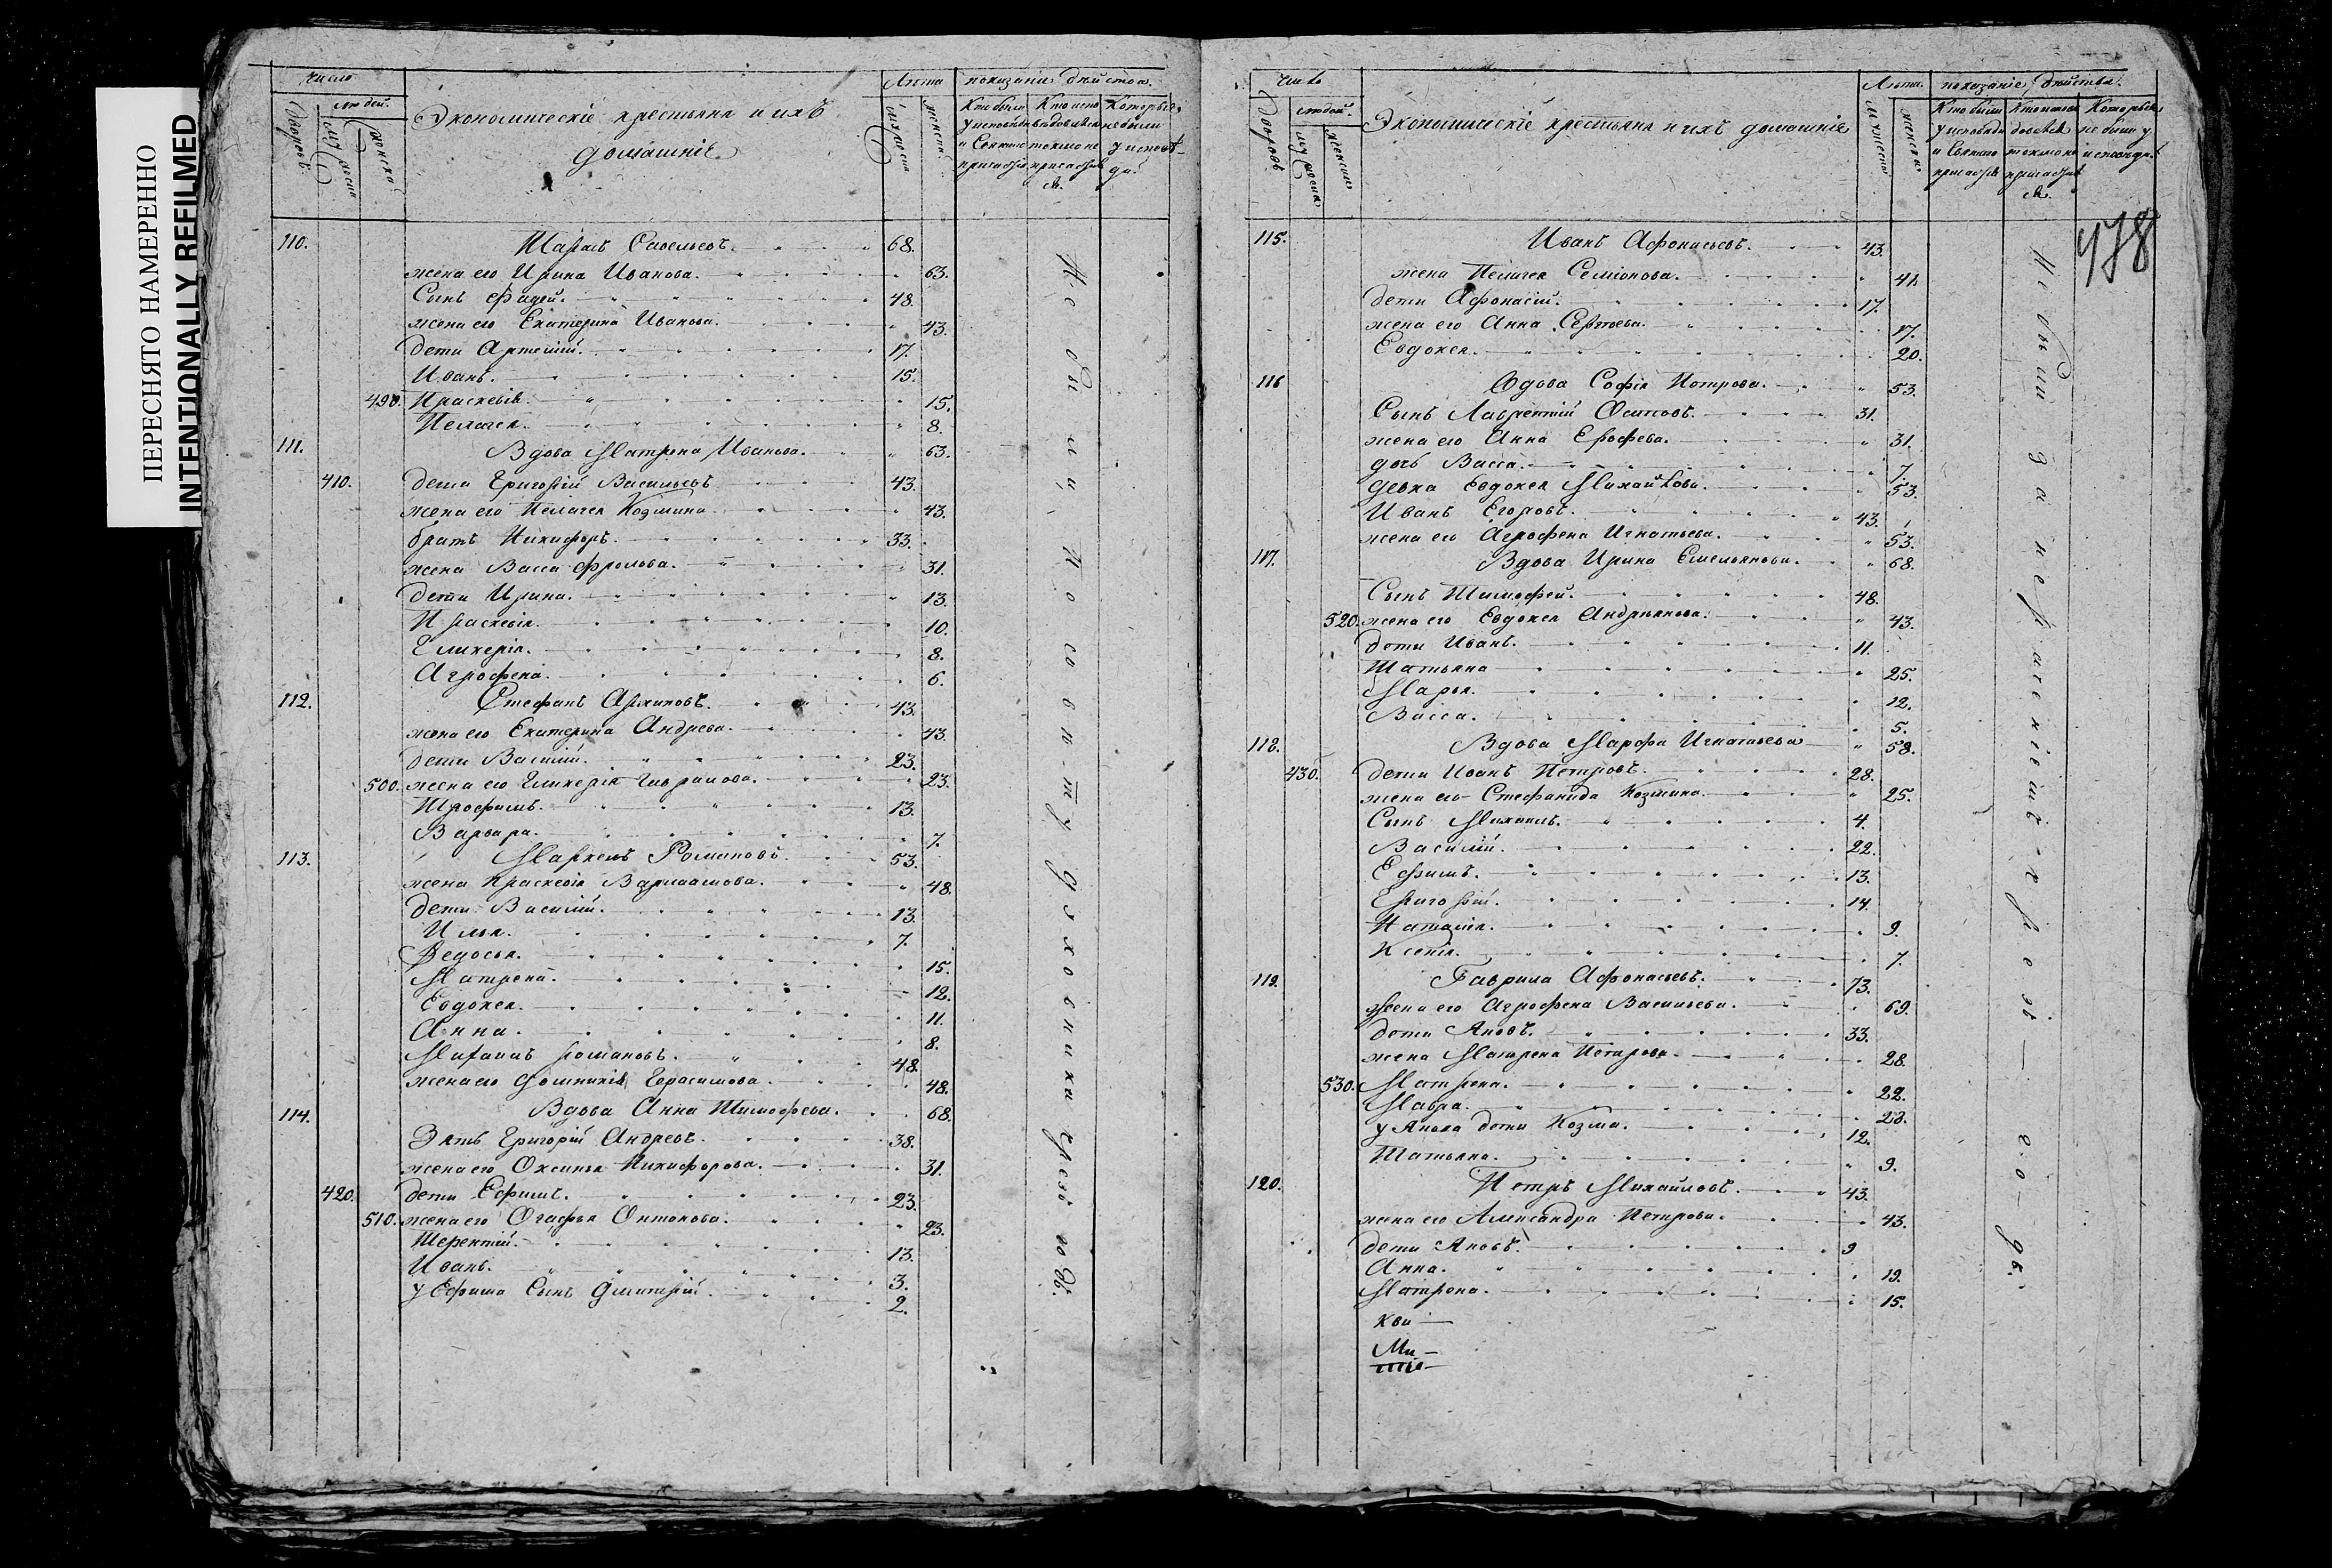 ПЕРЕСНЯТО НАМЕРЕННО
INTENTIONALLY REFILMED
число
Дворовъ
людей.
мужеска
женска
Экономическіе крестьяна и ихъ
домашніе
Лѣта
мужеска
женска
показаніе дѣйства.
Кто были у исповѣди и Святаго причастія
Кто исповѣдовался токмо не причастился.
Которые не были у исповѣди
110. Тарасъ Савельевъ. 68.
жена его Ирина Иванова. 63.
Сынъ Фадей. 48.
жена его Екатерина Иванова. 43.
дети Артемій. 17.
Иванъ. 15.
490. Праскевія 15.
Пелагея. 8.
111. Вдова Матрена Иванова. 63.
410. дети Григорій Васильевъ 43.
жена его Пелагея Козмина. 43.
братъ Никифоръ. 33.
жена Васса Фролова. 31.
дети Ирина. 13.
Праскевія. 10.
Гликерія. 8.
Агрофена. 6.
112. Стефанъ Архиповъ. 43.
жена его Екатерина Андрева. 43.
дети Василій. 23.
500. жена его Гликерія Гаврилова. 23.
Трофимъ. 13.
Варвара. 7.
113. Маркелъ Романовъ. 53.
жена Праскевія Варлаамова. 48.
дети Василій. 13.
Илья. 7.
Федосья. 15.
Матрена. 12.
Евдокея. 11.
Анна. 8.
Михаилъ Романовъ. 48.
жена его Домникія Герасимова. 48.
114. Вдова Анна Тимофрева. 68.
Зять Григорій Андревъ. 38.
жена его Оксинья Никифорова. 31.
420. дети Ефимъ. 23.
510. жена его Огафья Онтонова. 23.
Терентій. 13.
Иванъ. 3.
у Ефима Сынъ Дмитрій. 2.
Не были, по совѣту духовника чрезъ годъ.
478
число
Дворовъ
людей.
мужеска
женска
Экономическіе крестьяна и ихъ домашніе
Лѣта.
мужеска
женска
показаніе дѣйства.
Кто были у исповѣди и Святаго причастія
Кто исповѣдовался токмо не причастился.
Которые не были у исповѣди.
115. Иванъ Афонасьевъ. 43.
жена Пелагея Семіонова. 41.
дети Афонасій. 17.
жена его Анна Сергѣева. 17.
Евдокея. 20.
116 Вдова Софія Петрова. 53.
Сынъ Лаврентій Осиповъ. 31.
жена его Анна Ерофева. 31.
дочь Васса. 7.
девка Евдокея Михайлова. 53.
Иванъ Егоровъ. 43.
жена его Агрофена Игнатьева. 53.
117. Вдова Ирина Емельянова. 68.
Сынъ Тимофей. 48.
520. жена его Евдокея Андріянова. 43.
дети Иванъ. 11.
Татьяна 25.
Марья. 12.
Васса. 5.
118. Вдова Марфа Игнатьева 58.
430. дети Иванъ Петровъ. 28.
жена его Стефанида Козмина. 25.
Сынъ Михаилъ. 4.
Василій. 22.
Ефимъ. 13.
Григорій. 14.
Наталія. 9.
Ксенія. 7.
119. Гаврила Афонасьевъ. 73.
жена его Агрофена Васильева. 69.
дети Яковъ. 33.
жена Матрена Петрова. 28.
530. Матрена. 22.
Мавра. 23.
у Якова дети Козма. 12.
Татьяна. 9.
120. Петръ Михайловъ. 43.
жена его Александра Петрова. 43.
дети Яковъ. 9
Анна. 19.
Матрена. 15.
Не были за нераскеіемъ чрезъ годъ.